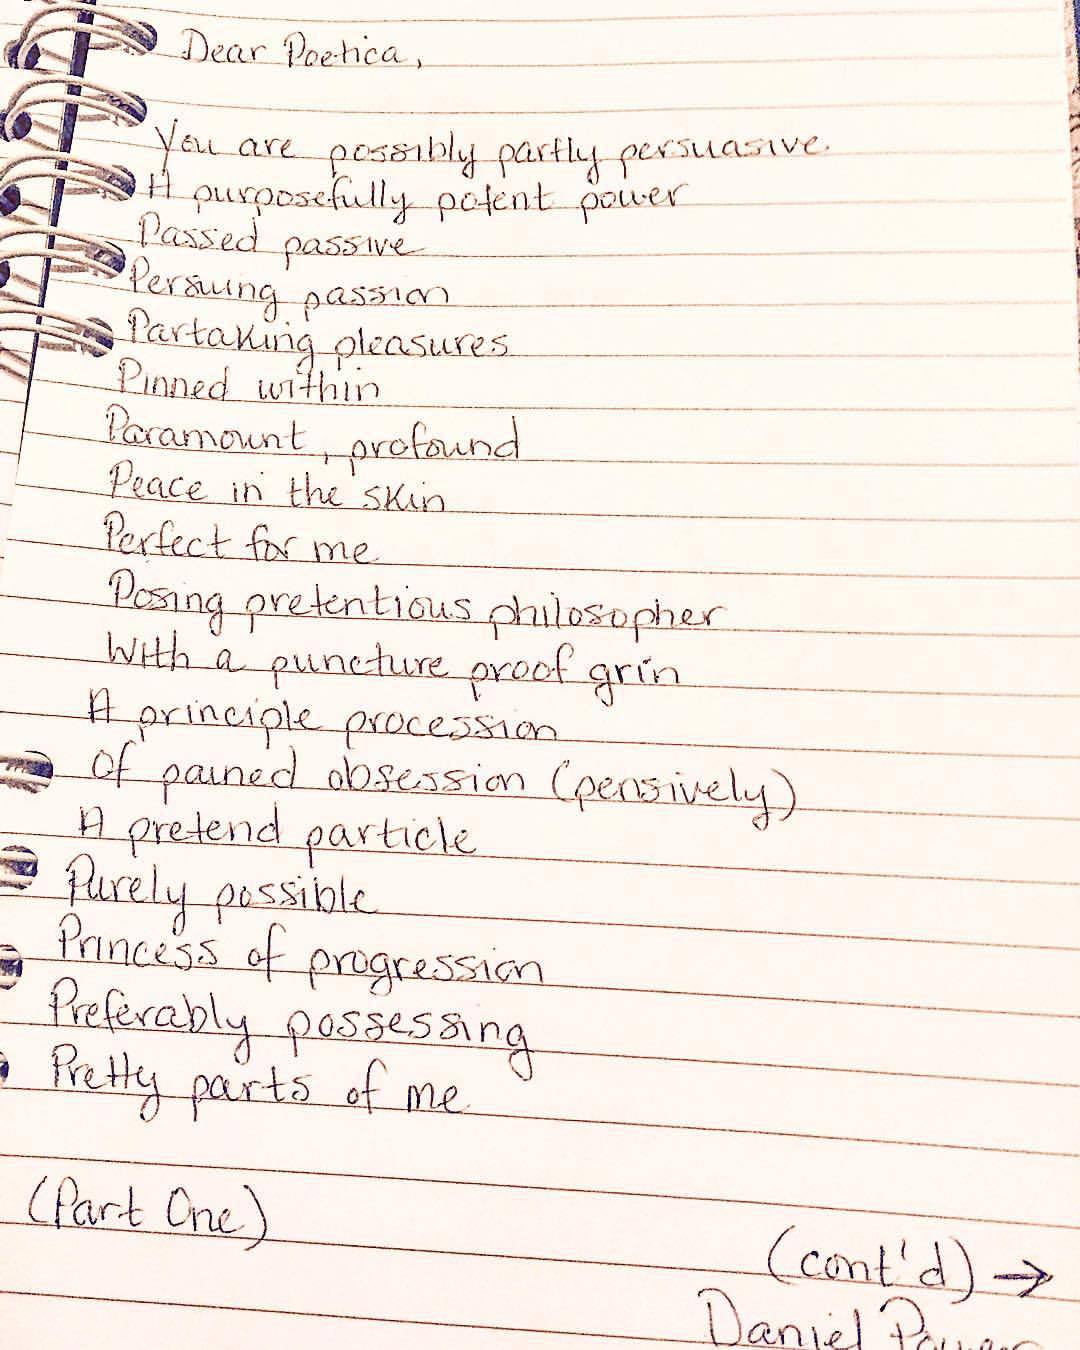 Dear Poetica,
You are possibly partly persuasive.
A purposefully potent power
Passed passive
Persuing passion
Partaking pleasures
Pinned within
Paramount, profound
Peace in the skin
Perfect for me
Posing pretentious philosopher
With a puncture proof grin
A principle procession
Of pained obsession (pensively)
A pretend particle
Purely possible
Princess of progression
Preferably possessing
Pretty parts of me
(Part One)
(cont'd) →
Daniel